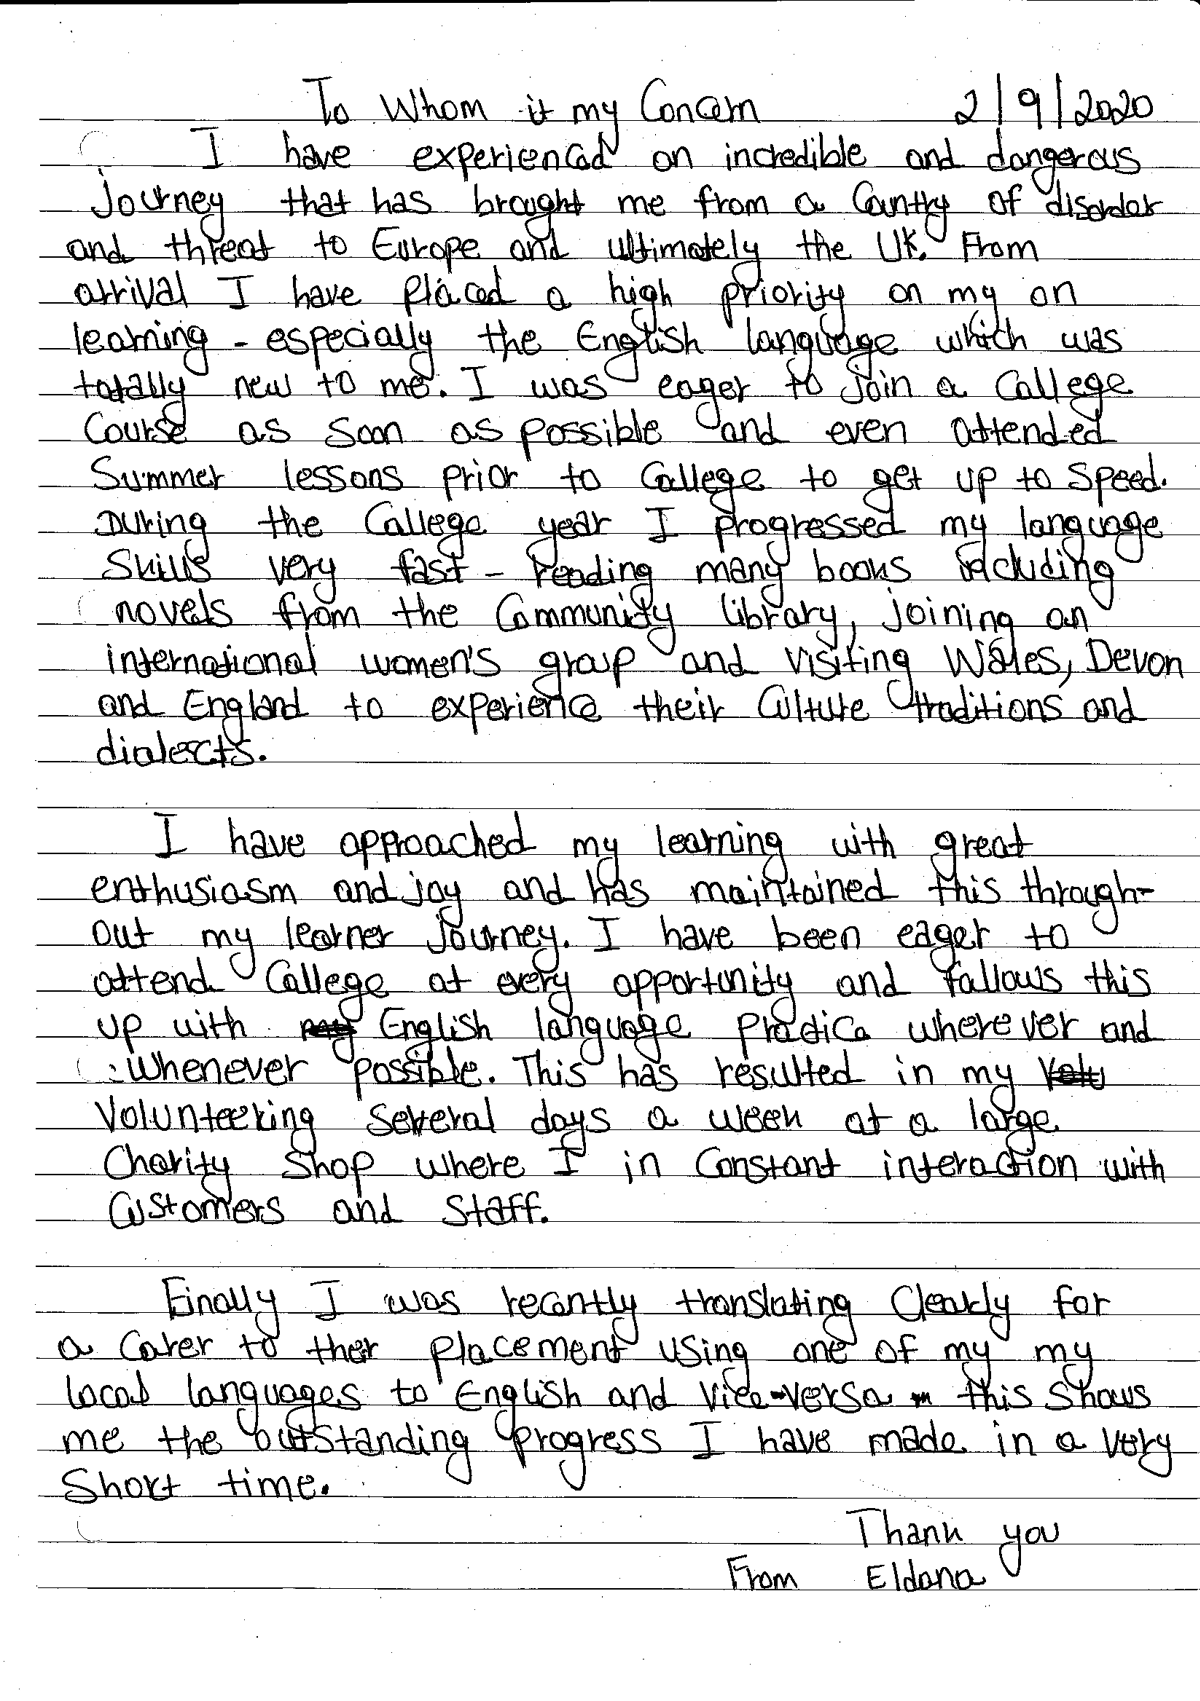 To Whom it my Concern 2/9/2020
I have experienced an incredible and dangerous
journey that has brought me from a Country of disorder
and threat to Europe and ultimately the UK. From
arrival I have placed a high priority on my on
learning - especially the English language which was
totally new to me. I was eager to join a College
Course as soon as possible and even attended
Summer lessons prior to College to get up to speed.
During the College year I progressed my language
Skills very fast - reading many books including
novels from the Community library, joining an
international women's group and visiting Wales, Devon
and England to experience their Culture traditions and
dialects.
I have approached my learning with great
enthusiasm and joy and has maintained this through-
out my learner journey. I have been eager to
attend College at every opportunity and follows this
up with English language practice wherever and
whenever possible. This has resulted in my
Volunteering several days a week at a large
Charity Shop where I in Constant interaction with
Customers and Staff.
Finally I was recently translating Clearly for
a Carer to ther placement using one of my my
local languages to English and vice-versa - this shows
me the outstanding progress I have made in a very
Short time.
Thank you
From Eldana